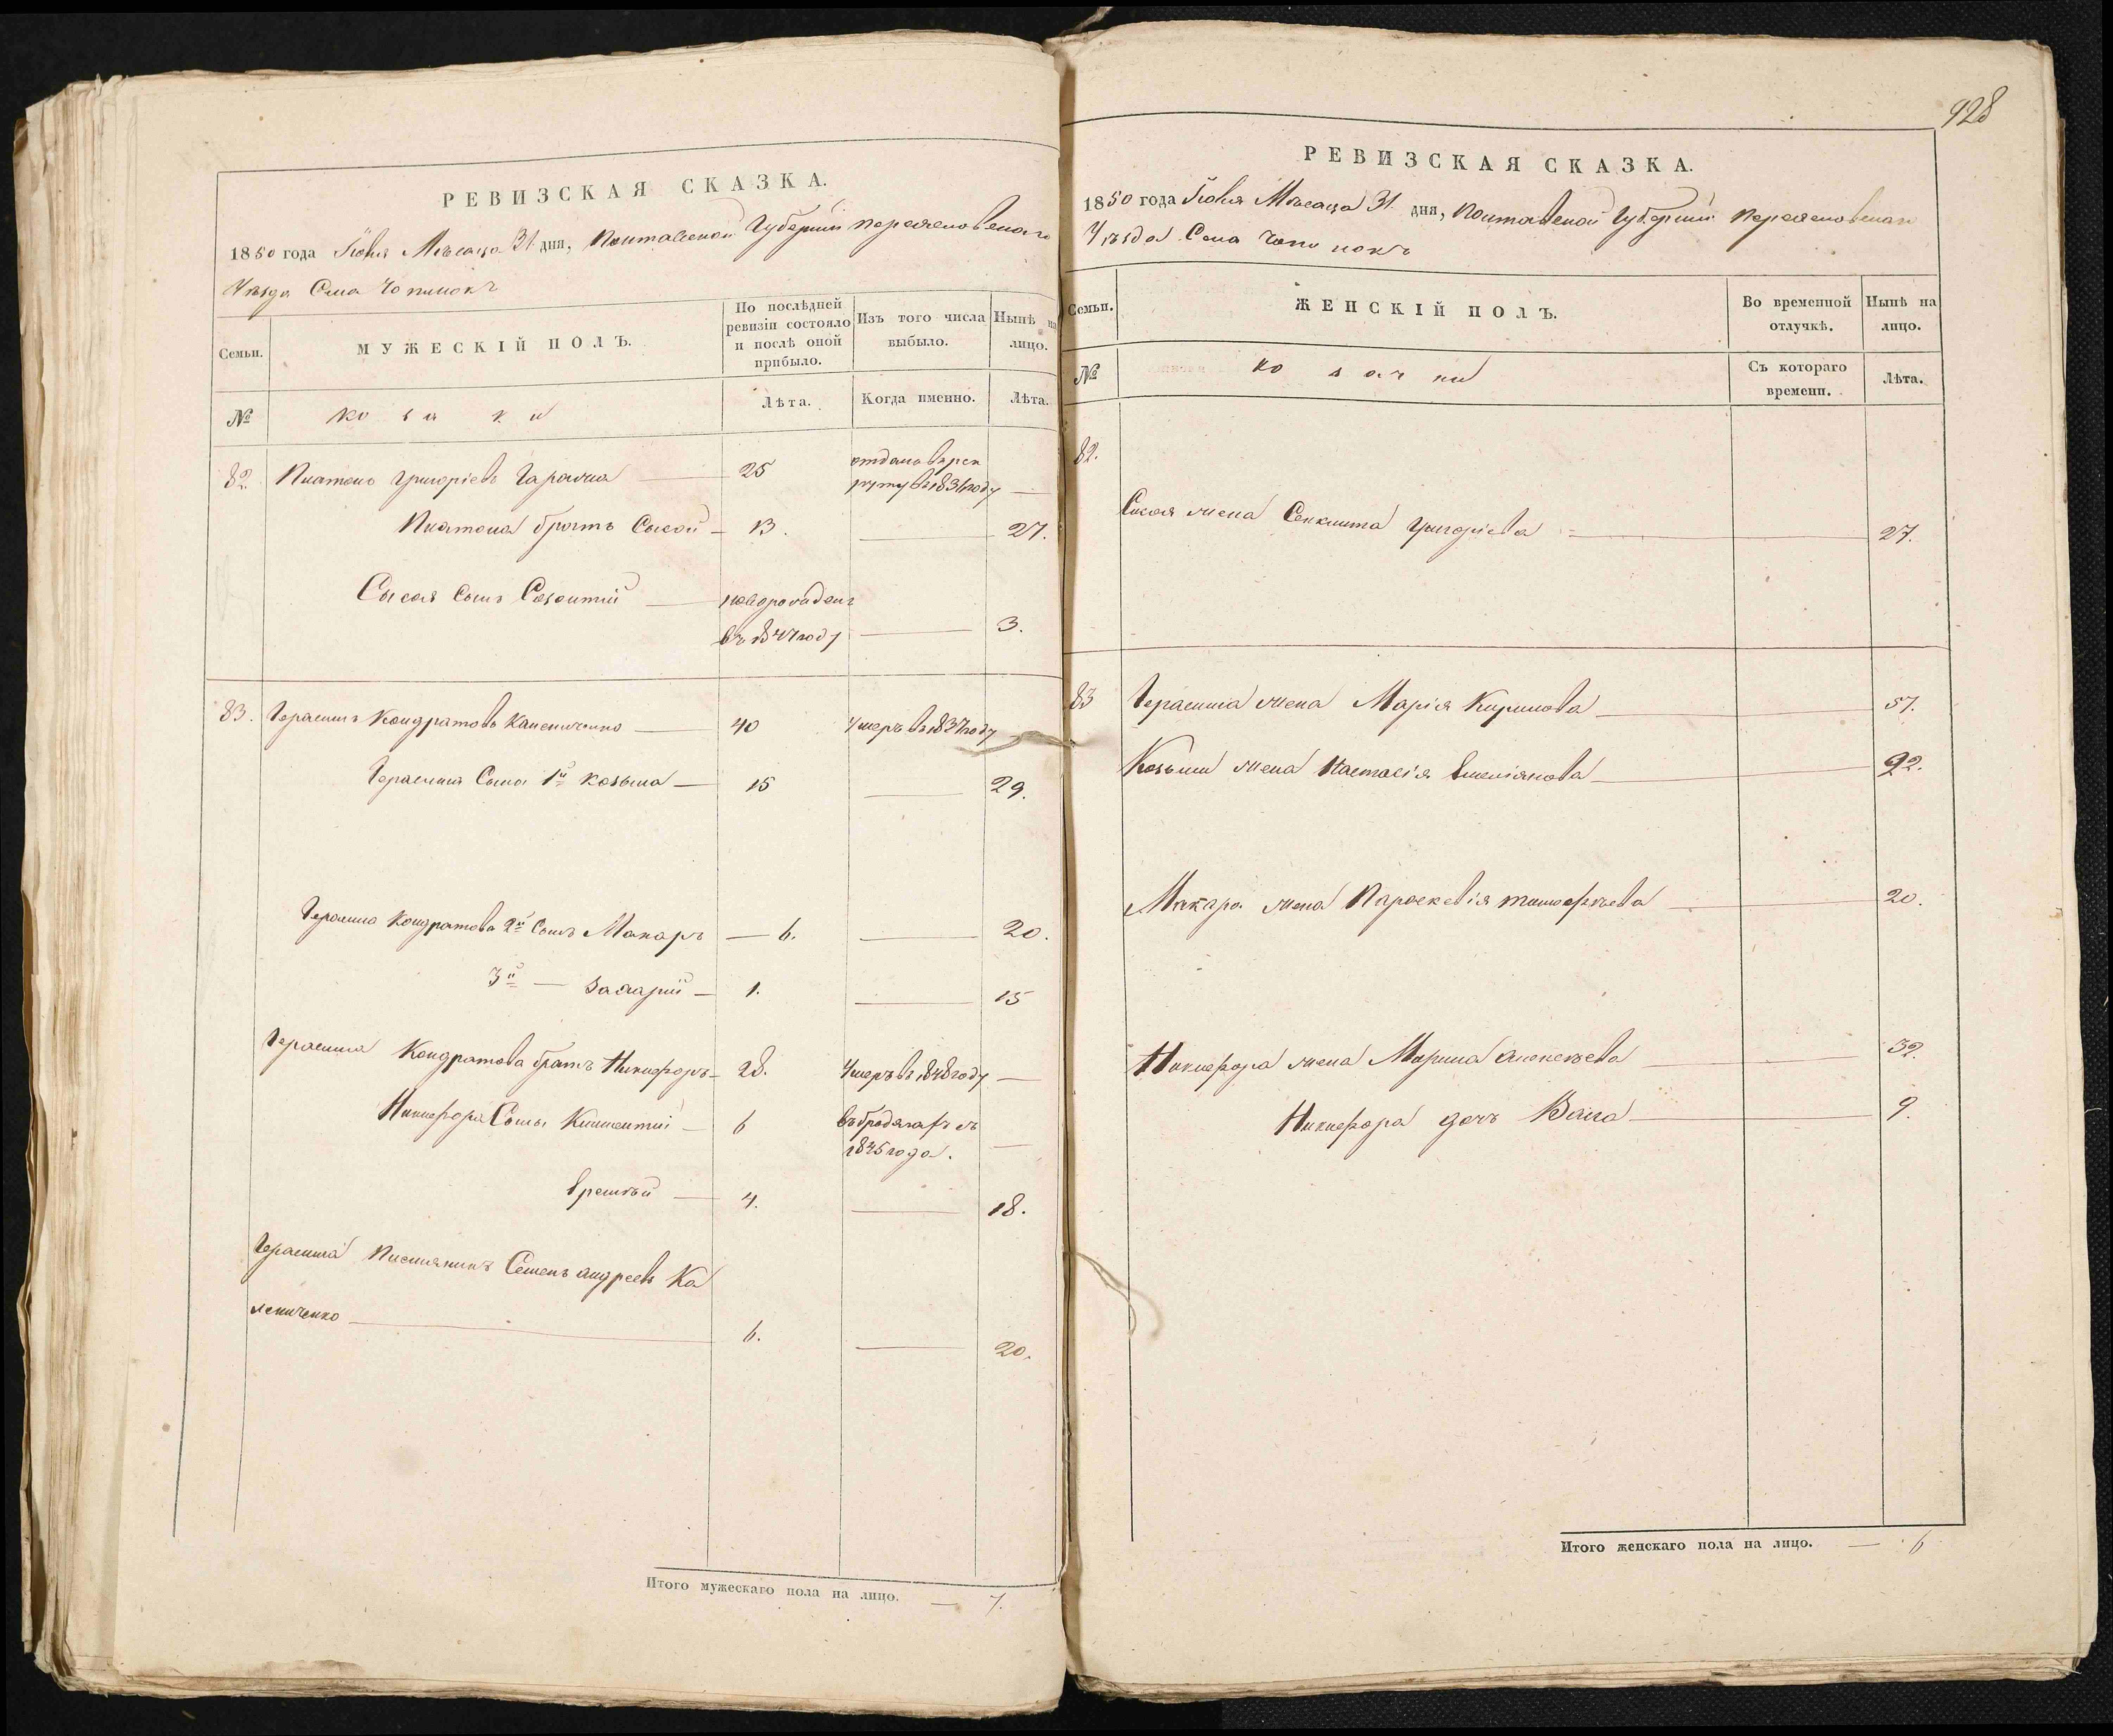 РЕВИЗСКАЯ СКАЗКА.
1850 года Іюня Мѣсаца 31 дня, Полтавской Губерніи Переясловскаго
Уѣзда Села Чопилокъ
Семьи.
МУЖЕСКІЙ ПОЛЪ.
По послѣдней ревизіи состояло и послѣ оной прибыло.
Изъ того числа выбыло.
Нынѣ на лицо.
№
козаки
Лѣта.
Когда именно.
Лѣта.
82. Платонъ Григоріевъ 25 отданъ в рек
руты въ 1831 году —
Платона братъ Сысой — 13. — 27.
Сысоя Сынъ Созонтій — новорожденъ
въ 1847 году — 3.
83. Герасимъ Кондратовъ Калениченко — 40 Умеръ въ 1837 году —
Герасима Сыны 1й Козьма — 15 — 29.
Герасима Кондратова 2й Сынъ Макаръ — 6. — 20.
3й — Захарій — 1. — 15
Герасима Кондратова братъ Никифоръ — 28. Умеръ въ 1848 году —
Никифора Сыны Климентій — 6 въ бродягахъ съ
1845 года. —
Еремѣй — 4. — 18.
Герасима Племяникъ Семенъ Андреевъ Ка
лениченко — 6. — 20.
Итого мужескаго пола на лицо. — 7.
928
РЕВИЗСКАЯ СКАЗКА.
1850 года Іюня Мѣсаца 31 дня, Полтавской Губерніи Переясловскаго
Уѣзда Села Чопилокъ
Семьи.
ЖЕНСКІЙ ПОЛЪ.
Во временной отлучкѣ.
Нынѣ на лицо.
№
козачки
Съ котораго времени.
Лѣта.
82.
Сысоя жена Секлита Григоріева — 27.
83 Герасима жена Марія Кирилова — 57.
Козьмы жена Настасія Емеліянова — 22.
Макара жена Параскевія Тимофѣева — 20.
Никифора жена Марина Алексѣева — 32.
Никифора дочь — 9.
Итого женскаго пола на лицо. — 6